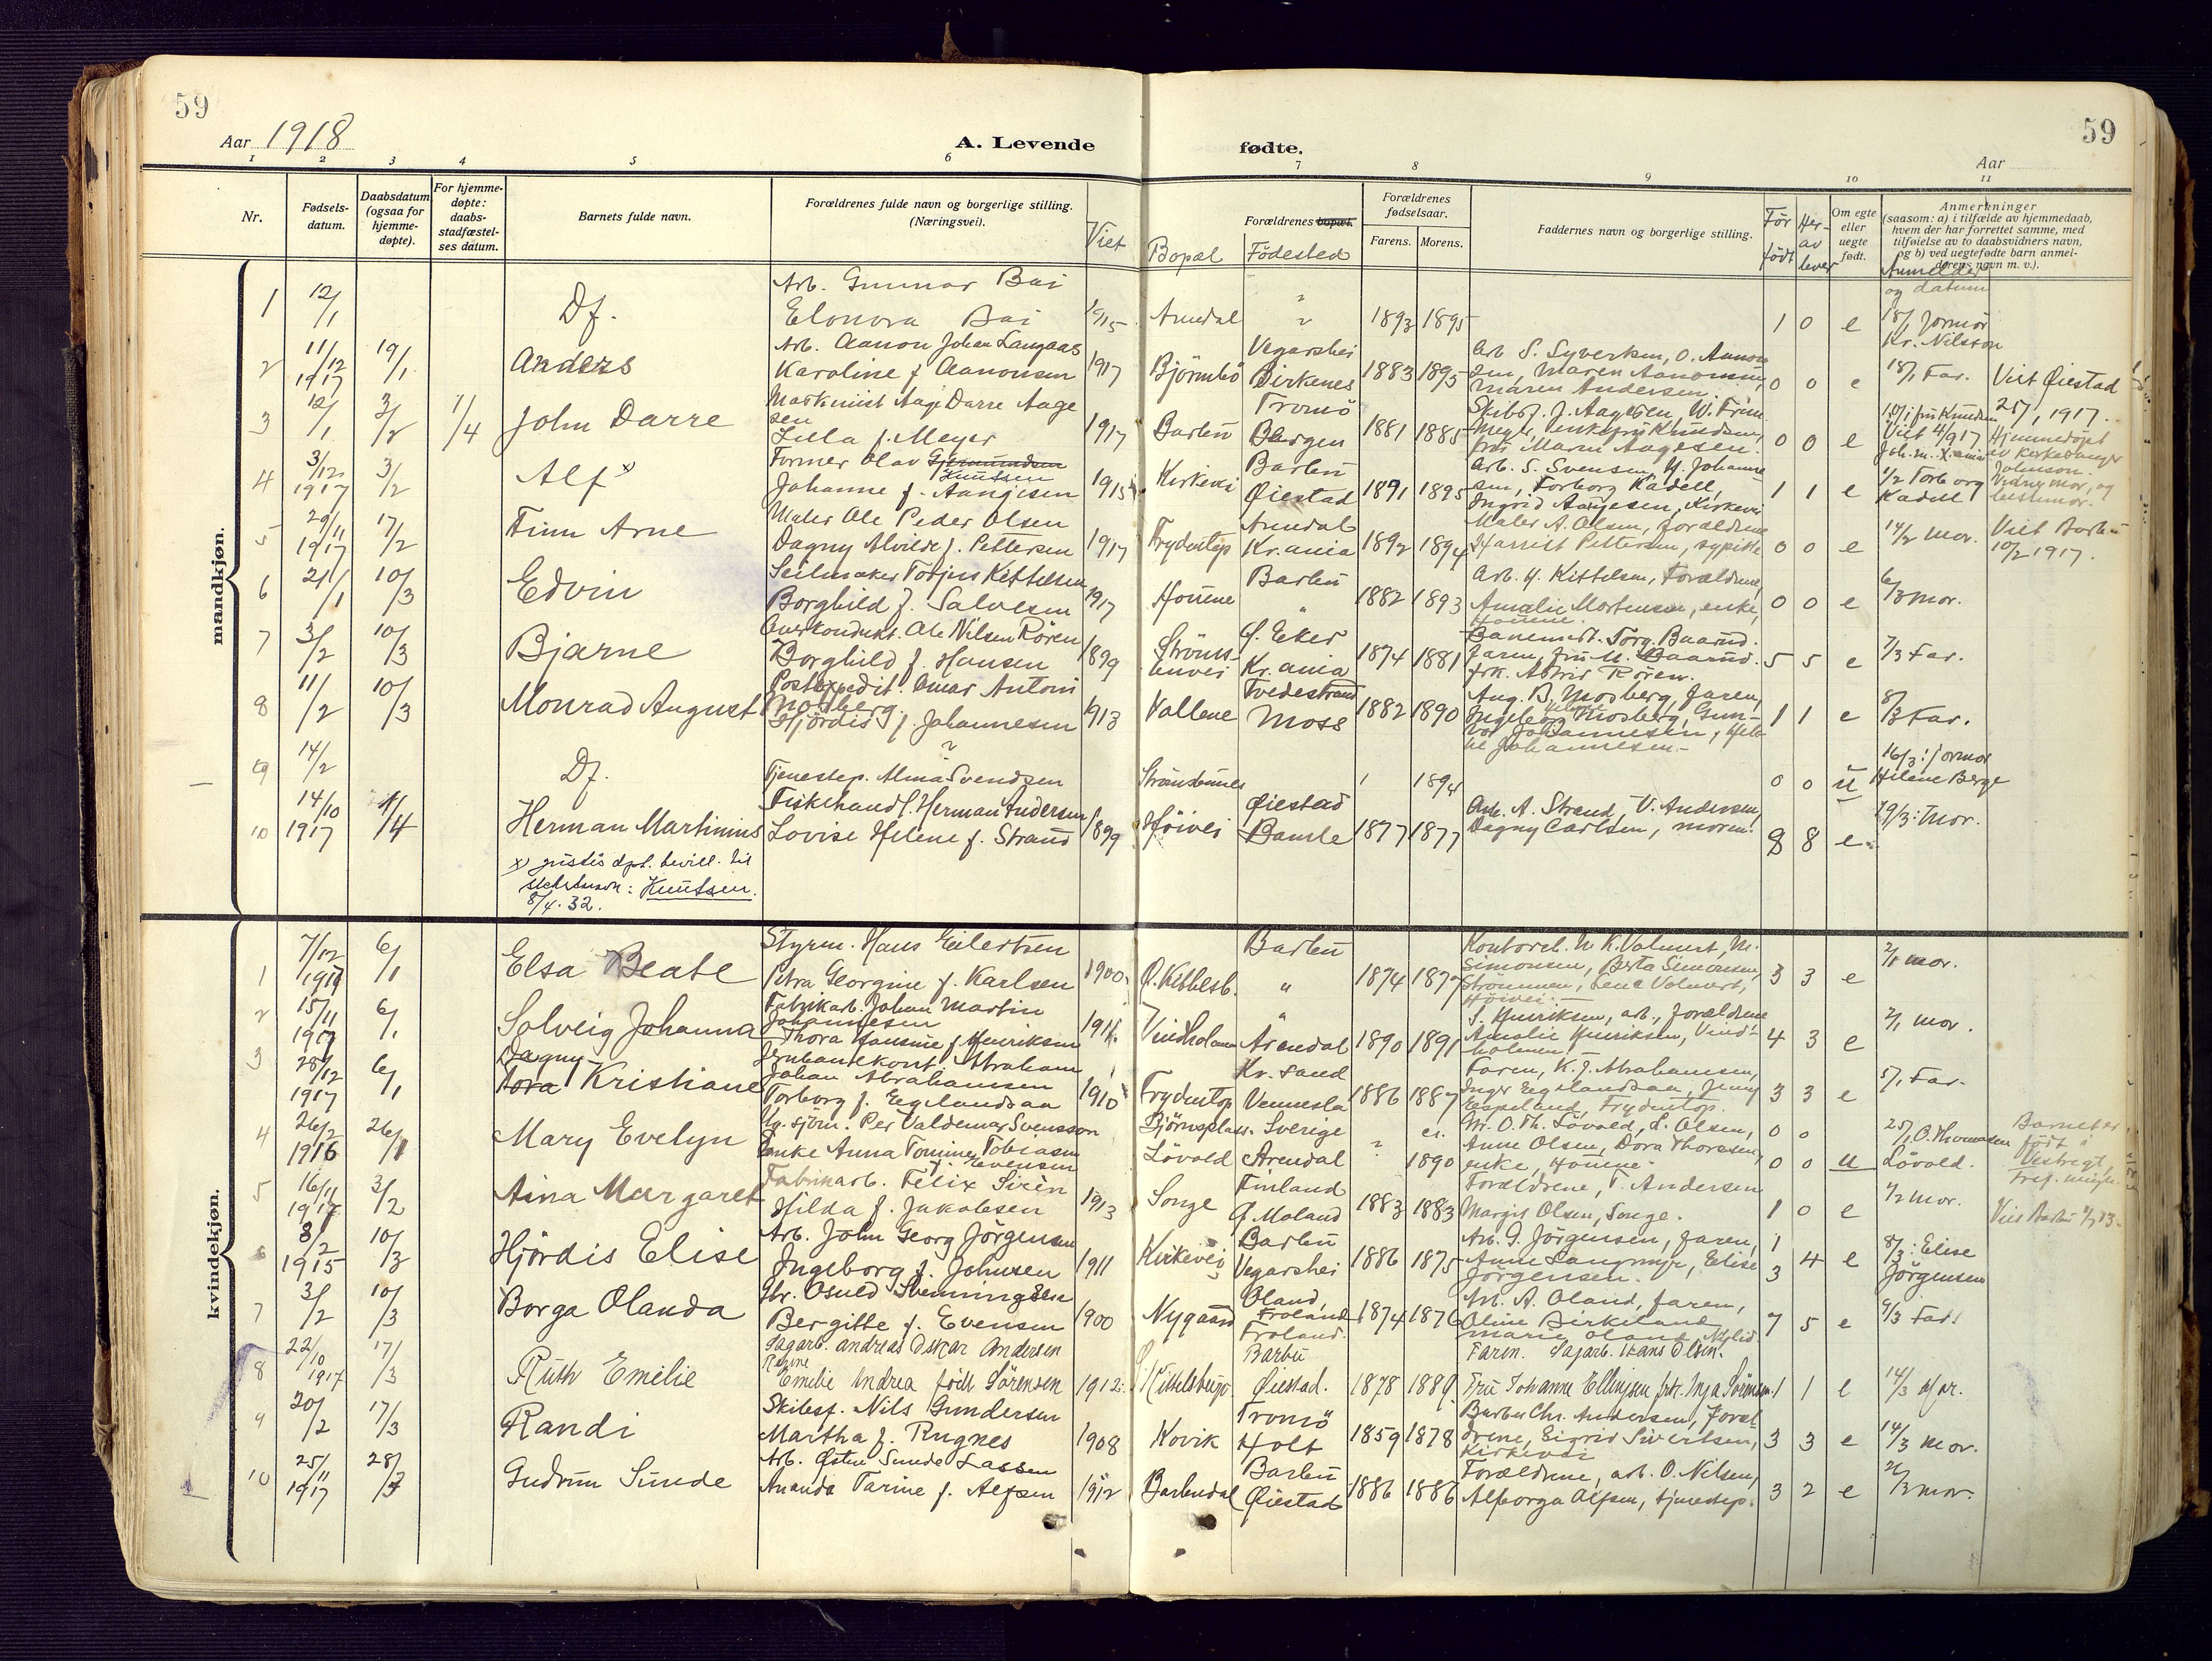 59
59
Aar 1918
A. Levende fødte.
Aar
1 2 3 4 5 6 7 8 9 10 11
Nr.
Fødsels-
datum.
Daabsdatum
(ogsaa for
hjemme-
døpte).
For hjemme-
døpte:
daabs-
stadfæstel-
ses datum.
Barnets fulde navn.
Forældrenes fulde navn og borgerlige stilling.
(Næringsvei).
Viet
Forældrenes bopæl.
Bopæl
Födested
Forældrenes
fødselsaar.
Farens. Morens.
Faddernes navn og borgerlige stilling.
Før
født
Her-
av
lever
Om egte
eller
uegte
født.
Anmerkninger
(saasom: a) i tilfælde av hjemmedaab,
hvem der har forrettet samme, med
tilføielse av to daabsvidners navn,
og b) ved uegtefødte barn anmel-
derens navn m. v.).
Anmelder
og datum
mandkjøn.
1 12/1 Df.
Arb. Gunnar Bai
Elonora Bai
1915 Arendal 1893 1895 1 0 e
18/1 Jormor
Kr. Nilsson
2 11/12 1917 19/1 Anders
Arb. Aanon Johan Langaas
Karoline f. Aanonsen
1917 Björnbö
Vegarshei
Birkenes
1883 1895
Arb S. Syvertsen, O. Aanon
sen, Maren Aanonsen,
Maren Andersen
0 0 e 18/1 Far.
Viet Øiestad
25/1 1917.
3 12/1 3/2 1/4 John Darre
Maskinist Aage Darre Aage
sen
Lilla f. Meyer
1917 Barbu
Tromö
Bergen
1881 1885
Skibsf. J. Aagesen, W. Frim
Meyer, enkefru Knudsen,
frk Maren Aagesen.
0 0 e
Viet 4/9 17
Hjemmedøpt
av
4 3/12 1917 3/2 Alf x
Former Olav Gjermundsen
Knutsen
Johanne f. Aangesen
1915 Kirkevei
Barbu
Øiestad
1891 1895
Arb. S. Svensen, H. Johanne
sen, Torborg Kadell,
Ingrid Aangesen, Kirkevei
1 1 e
1/2 Torborg
Kadell
5 29/11 1917 17/2 Finn Arne
Maler Ole Peder Olsen
Dagny Alvilde f. Pettersen
1917 Frydentop
Arendal
Kr.ania
1892 1894
Maler A. Olsen, forældrene
Harriet Pettersen, sypike
0 0 e 14/2 mor.
Viet Barbu
10/2 1917.
6 21/1 10/3 Edvin
Seilmaker Torjus Kittelsen
Borghild f. Salvesen
1917 Houene
Barbu
"
1882 1893
Arb. H. Kittelsen, Forældrene,
Amalie Mortensen, enke,
Houene.
0 0 e 6/3 mor.
7 3/2 10/3 Bjarne
Overkondukt. Ole Nilsen Rören
Borghild f. Hansen
1899
Ströms-
buvei
Ø. Eker
Kr.ania
1874 1881
Banemest. Torg. Baarud.
Faren, fru M. Baarud.
frk. Astrid Rören.
5 5 e 7/3 Far.
8 11/2 10/3 Monrad August
Postexpedit. Omar Antoni
Mosberg.
Hjördis f. Johannesen
1913 Vollene
Tvedestrand
Moss
1882 1890
Aug. B. Mosberg, faren,
Ingeborg Mosberg, Gun-
vor Johannesen, Hel-
ne Johannesen.-
1 1 e 8/3 Far.
9 14/2 Df.
?
Tjenestep. Alma Svendsen
1894 0 0 u
16/3: Jormor
Helene Berge
10 14/10 1917 1/4 Herman Martinius
Fiskehandl. Herman Andersen
Lovise Helene f. Strand
1899 Høivei
Øiestad
Bamle
1877 1877
Arb. A. Strand, V. Andersen,
Dagny Carlsen, moren.
8 8 e 19/3: Mor.
x) justis dpt. bevill. til
slektsnavn: Knutsen.
8/4. 32.
kvindekjøn.
1 7/12 1917 6/1 Elsa Beate
Styrm. Hans Eilertsen
Petra Georgine f. Karlsen
1900 Ø. Kittelsb.
Barbu
"
1874 1877
Kontorch. N. K. Volmert, M.
Simonsen, Berta Simonsen,
Strømmen, Lena Volmert,
Høivei.
3 3 e 2/1 mor.
2 15/11 1917 6/1 Solveig Johanna
Fabrikarb. Johan Martin
Johannesen
Thora Hansine f. Henriksen
1911. Vindholmen
"
Arendal
1890 1891
S. Henriksen, arb., forældrene
Amalie Henriksen, Vind-
holmen.
4 3 e 2/1 mor.
3 28/12 1917 6/1 Dagny
Tora Kristiane
Jernbanekont. Abraham
Johan Abrahamsen
Torborg f. Egelandsaa
1910 Frydentop
Kr.sand
Vennesla
1886 1887
Faren, K. J. Abrahamsen,
Inger Egelandsaa, Jenny
Espeland, Frydentop.
3 3 e 5/1 Far.
4 26/2 1916 26/1 Mary Evelyn
Ug. sjöm. Per Valdemar Svensson
Enke Anna Tomine Tobiasen
f. Evensen
Björnsplass.
Lövold
Sverige
Arendal
? 1890
Mr. O. Th. Lövold, L. Olsen,
Anne Olsen, Dora Thorsen,
enke, Houene.
0 0
0 0 u
25/1 O. Thomassen
Lövold.
Barnet er
født i
5 16/11 1917 3/2 Aina Margaret
Fabrikarb. Felix Sirèn
Hilda f. Jakobsen
1913 Songe
Finland
Ø. Moland
1883 1883
Forældrene, T. Andersen
Margit Olsen, Songe.
1 0 e 1/2 mor.
6 8/2 1915 10/3 Hjördis Elise
Arb. John Georg Jörgensen
Ingeborg f. Johnsen
1911 Kirkevei
Barbu
Vegarshei
1886 1875
Arb. G. Jörgensen, faren,
Anne Langmyr, Elise
Jörgensen.
1
3 4 e
8/3: Elise
Jörgensen
7 3/2 10/3 Borga Olanda
Str. Osuld Svenningsen
Bergitte f. Evensen
1900 Nygaard
Oland,
Froland
Froland.
1874 1876
Arb. A. Oland, faren,
Oline Birkeland
Marie Oland
7 5 e 9/3 Far.
8 22/10 1917 17/3 Ruth Emilie
Sagarb. Andreas Oskar Andersen
Regine
Emilie Andrea født Sörensen
1912. Ø. Kittelsbugt
Barbu
Øiestad.
1878 1889
Faren. Sagarb. Hans Olsen.
Fru Johanne Ellingsen frk. Inga Sörensen
1 1 e 14/3 Mor.
9 20/2 17/3 Randi
Skibsf. Nils Gundersen
Martha f. Rugnes
1908 Kovik
Tromö
Holt
1859 1878
Barber Chr. Andersen, Foræl-
drene, Sigrid Sivertsen,
Kirkevei
3 3 e 14/3 mor.
10 25/11 1917 28/3 Gudrun Sunde
Arb. Østen Sunde Lassen
Ananda Tarine f. Alfsen
1912 Barbudal
Barbu
Øiestad
1886 1886
Forældrene, arb. O. Nilsen,
Alfborga Alfsen, tjenestep.
3 2 e 21/3 mor.